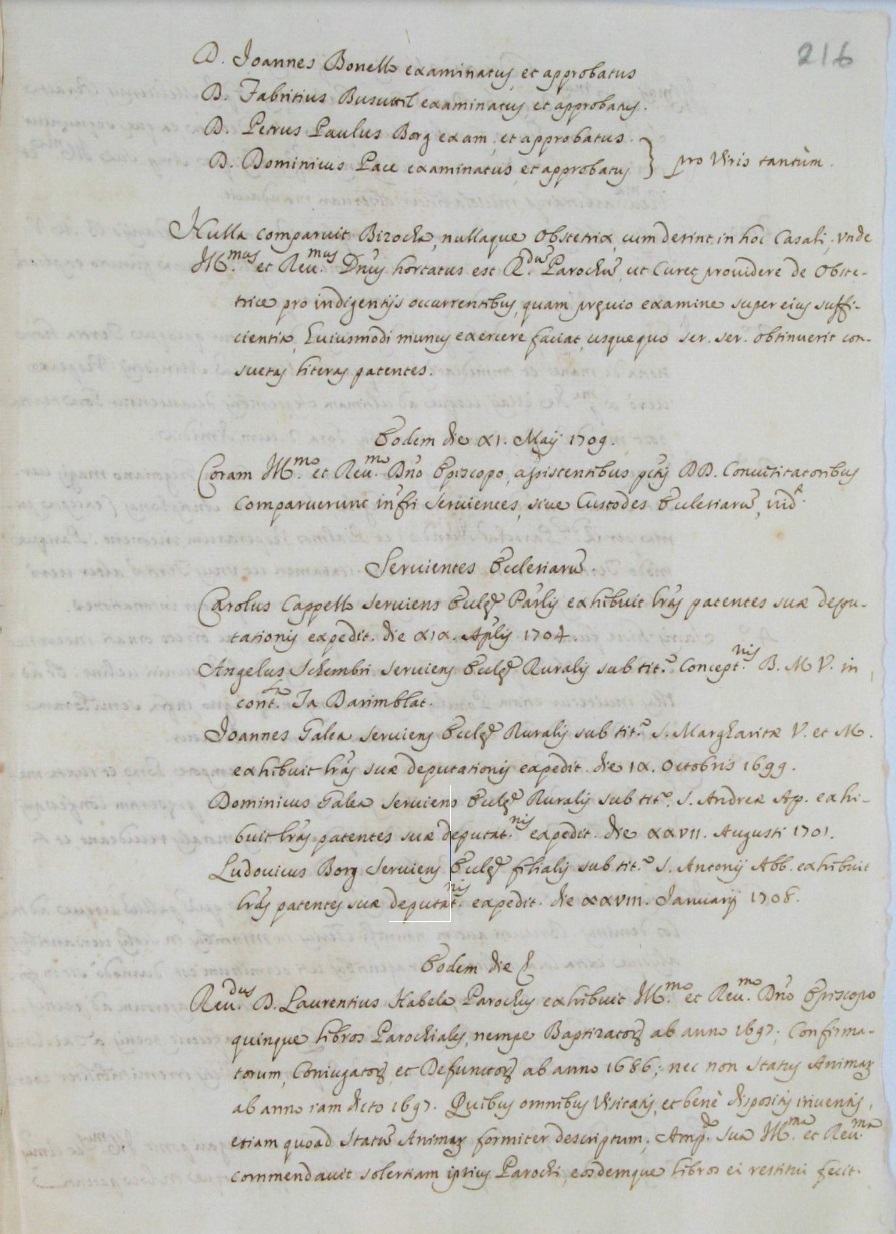 216
D. Joannes Bonello examinatus, et approbatus
D. Fabritius Busuttil examinatus, et approbatus.
D. Petrus Paulus Borg exam., et approbatus.
D. Dominicus Pace examinatus, et approbatus } pro Viris tantùm.
Nulla comparuit Bizocha, nullaque Obstetrix, cum desint in hoc Casali; unde
Ill.mus et Reu.mus Dnus hortatus est R.dum Parochū, ut Curet providere de Obste-
trice pro indigentijs occurrentibus, quam pręuio examine super eius suffi-
cientia, huiusmodi munus exercere faciat, usquequo ser. ser. obtinuerit con-
suetas literas patentes.
Eodem die XI. Maij 1709.
Coram Ill.mo et Reu.mo Dno Episcopo, assistentibus pctis DD. Conuisitatoribus
Comparuerunt infri Seruientes, siue Custodes Ecclesiarū, uid.t
Seruientes Ecclesiarū.
Carolus Cappello Seruiens Eccłę Parlis exhibuit lras patentes suæ depu-
tationis expedit. die XIX. Aprlis 1704.
Angelus Schembri Seruiens Eccłę Ruralis sub tit.o Concept.nis B. M. V. in
cont.ta Ta Darimblat.
Joannes Galea Seruiens Eccłę Ruralis sub tit.o S. Margharitæ V. et M.
exhibuit lras suæ deputationis expedit. die IX. Octobris 1699.
Dominicus Galea Seruiens Eccłę Ruralis sub tit.o S. Andreæ Ap. exhi-
buit lras patentes suæ deputat.nis expedit. die XXVII. Augusti 1701.
Ludovicus Borg Seruiens Eccłę filialis sub tit.o S. Antonij Abb. exhibuit
lras patentes suæ deputat.nis expedit. die XXVIII. Januarij 1708.
Eodem die
Reu.dus D. Laurentius Habela Parochus exhibuit Ill.mo et Reu.mo Dno Episcopo
quinque libros Parochiales, nempe Baptizatorȝ ab anno 1697; Confirma-
torum, Coniugatorȝ, et Defunctorȝ ab anno 1686; nec non Status Animarȝ
ab anno iam dicto 1697. Quibus omnibus Visitatis, et benè dispositis inuentis,
etiam quoad Statū Animarȝ formiter descriptum; Amp.do sua Ill.ma et Reu.ma
commendauit solertiam ipsius Parochi, eosdemque libros ei restitui fecit.